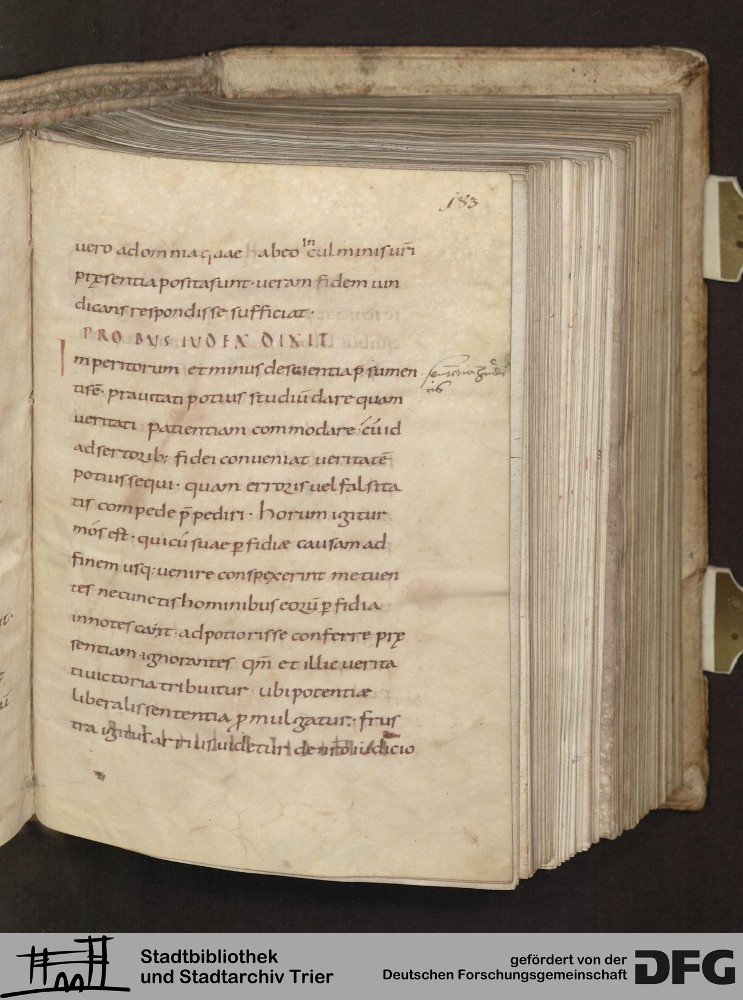 183
uero ad omnia quae habeo in culminis uri
pręsentia posita sunt · ueram fidem uin
dicans respondisse sufficiat ·
PROBUS IUDEX DIXIT
Inperitorum et minus de scientia p̄sumen
tisē · prauitati potius studiū dare quam
ueritati patientiam commodare · cū id
adsertorib; fidei conueniat ueritatē
potius sequi · quam erroris uel falsita
tis compede p̄pediri · horum igitur
mós est · qui cū suae ꝑfidiæ causam ad
finem usq; uenire conspexerint metuen
tes ne cunctis hominibus eorū ꝑfidia
innotescat · ad potiorisse conferre prę
sentiam · ignorantes qm̄ et illic uerita
ti uictoria tribuitur ubi potentiæ
liberalis sententia ꝓmulgatur · frus
tra igitur arrius uidetur de nro iudicio
Stadtbibliothek
und Stadtarchiv Trier
gefördert von der
Deutschen Forschungsgemeinschaft
DFG